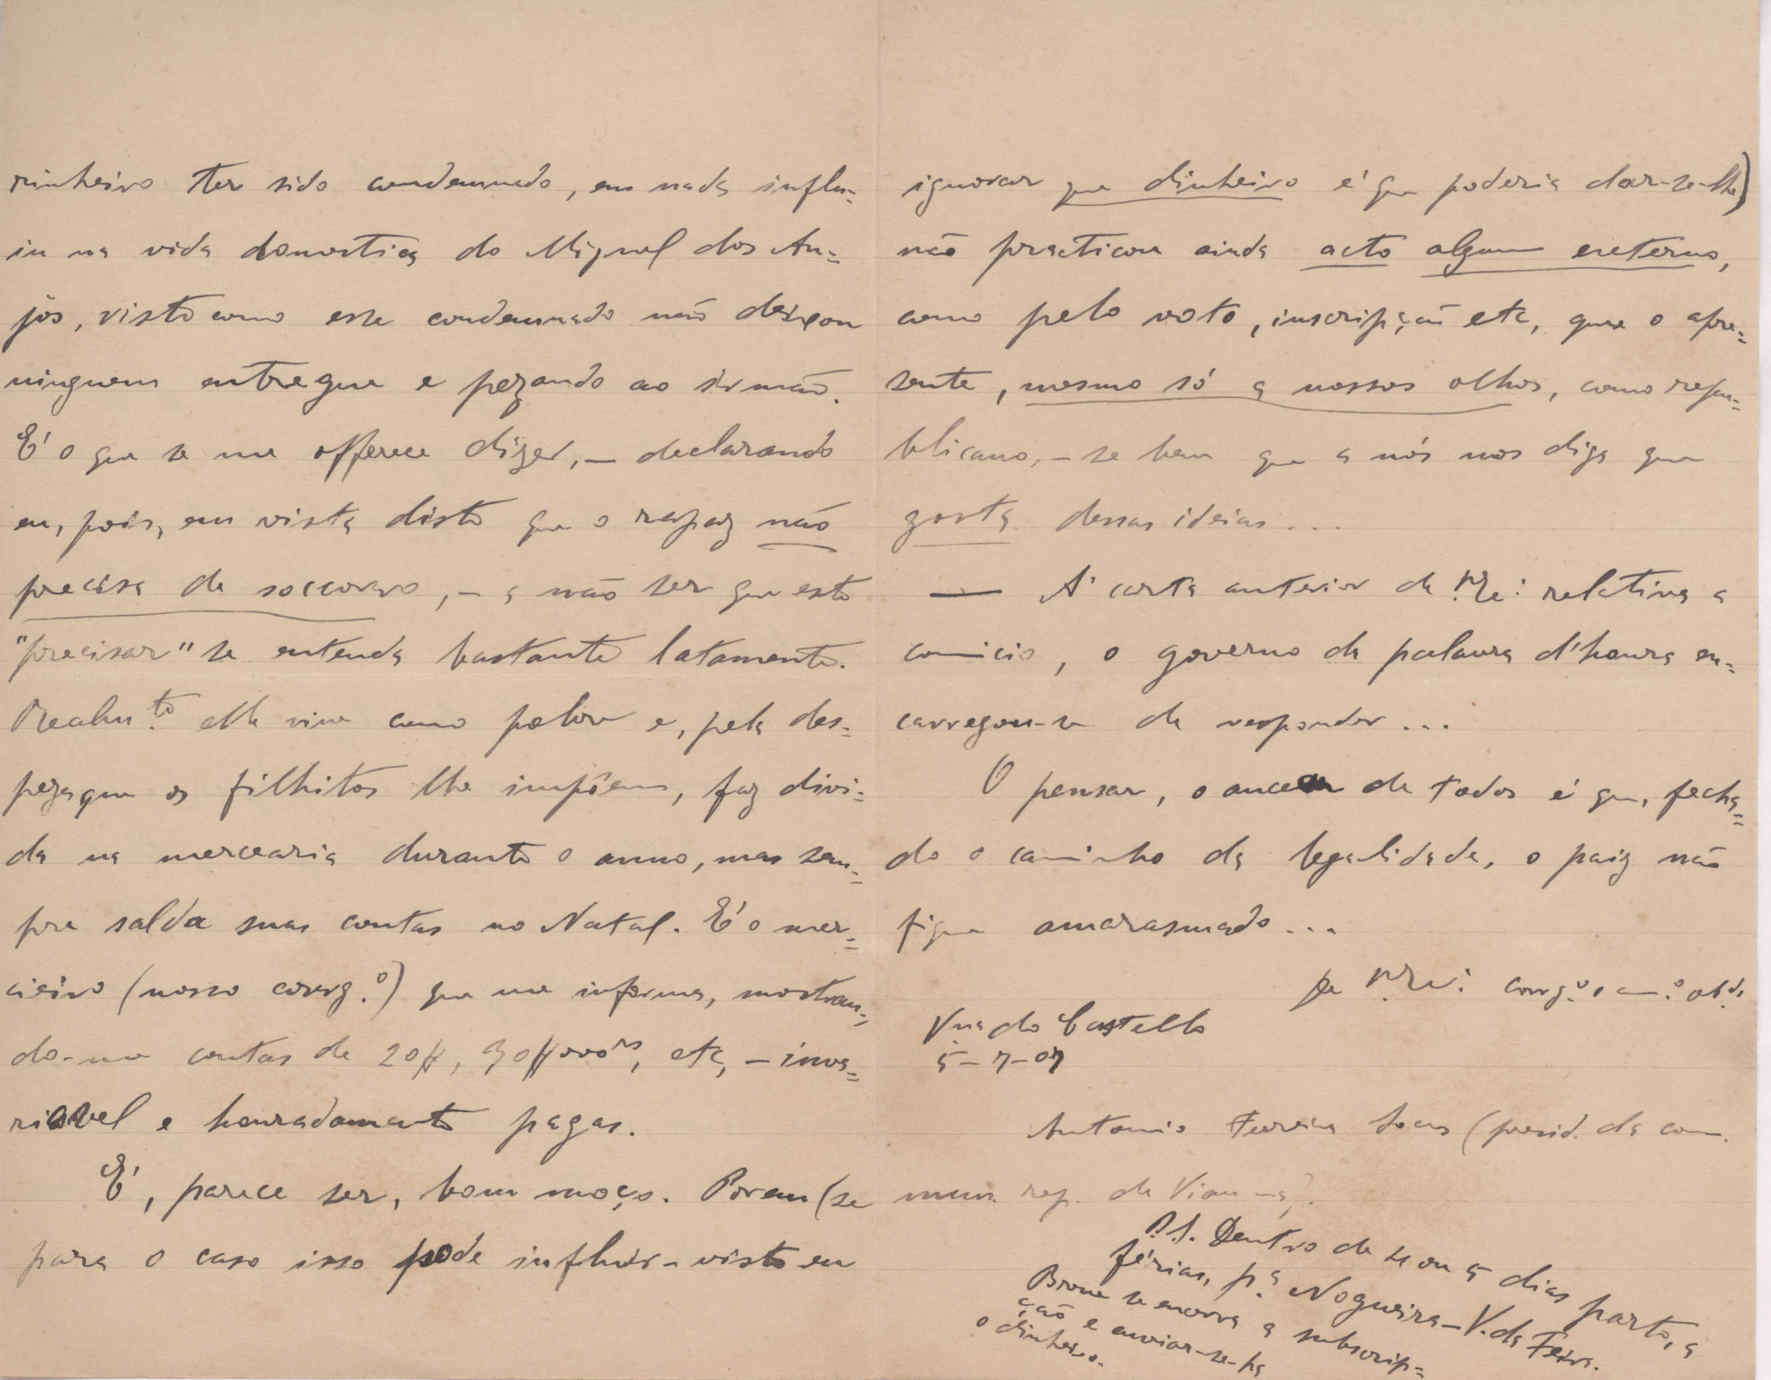 rinheiro ter sido condemnado, em nada influ=
iu na vida domestica do Miguel dos An=
jos, visto como esse condemnado não deixou
ninguem entregue e pezando ao irmão.
É o que se me offerece dizer, – declarando
eu, pois, em vista disto que o rapaz não
precisa de soccorro, – a não ser que este
"precisar" se entenda bastante latamente.
Realm.te elle vive como pobre e, pela des=
peza que os filhitos lhe impõem, faz divi=
da na mercearia durante o anno, mas sem=
pre salda suas contas no Natal. É o mer=
cieiro (nosso correg.o) que me informa, mostran=
do-me contas de 20$, 30$000rs, etc, – inva=
riavel e honradamente pagas.
É, parece ser, bom moço. Porem (se
para o caso isso pode influir – visto eu
ignorar que dinheiro é que poderia dar-se-lhe)
não practicou ainda acto algum externo,
como pelo voto, inscripção etc, que o apre=
sente, mesmo só a nossos olhos, como repu=
blicano, – se bem que a nós nos diga que
gosta dessas ideias...
— A' carta anterior de relativa a
comicio, o governo de palavra d'honra en=
carregou-se de responder...
O pensar, o de todos é que, fecha=
do o caminho da legalidade, o paiz não
fique amarasmado...
De correg.o e am.o ob.do
Vna do Castello
5-7-07
Antonio Ferreira Soares (presid. da com.
mun. rep. de Vianna).
P.S. Dentro de 4 ou 5 dias parto, a
férias, p.a Nogueira – V. da Feira.
Breve se encerra a subscrip=
ção e enviar-se-ha
o dinheiro.